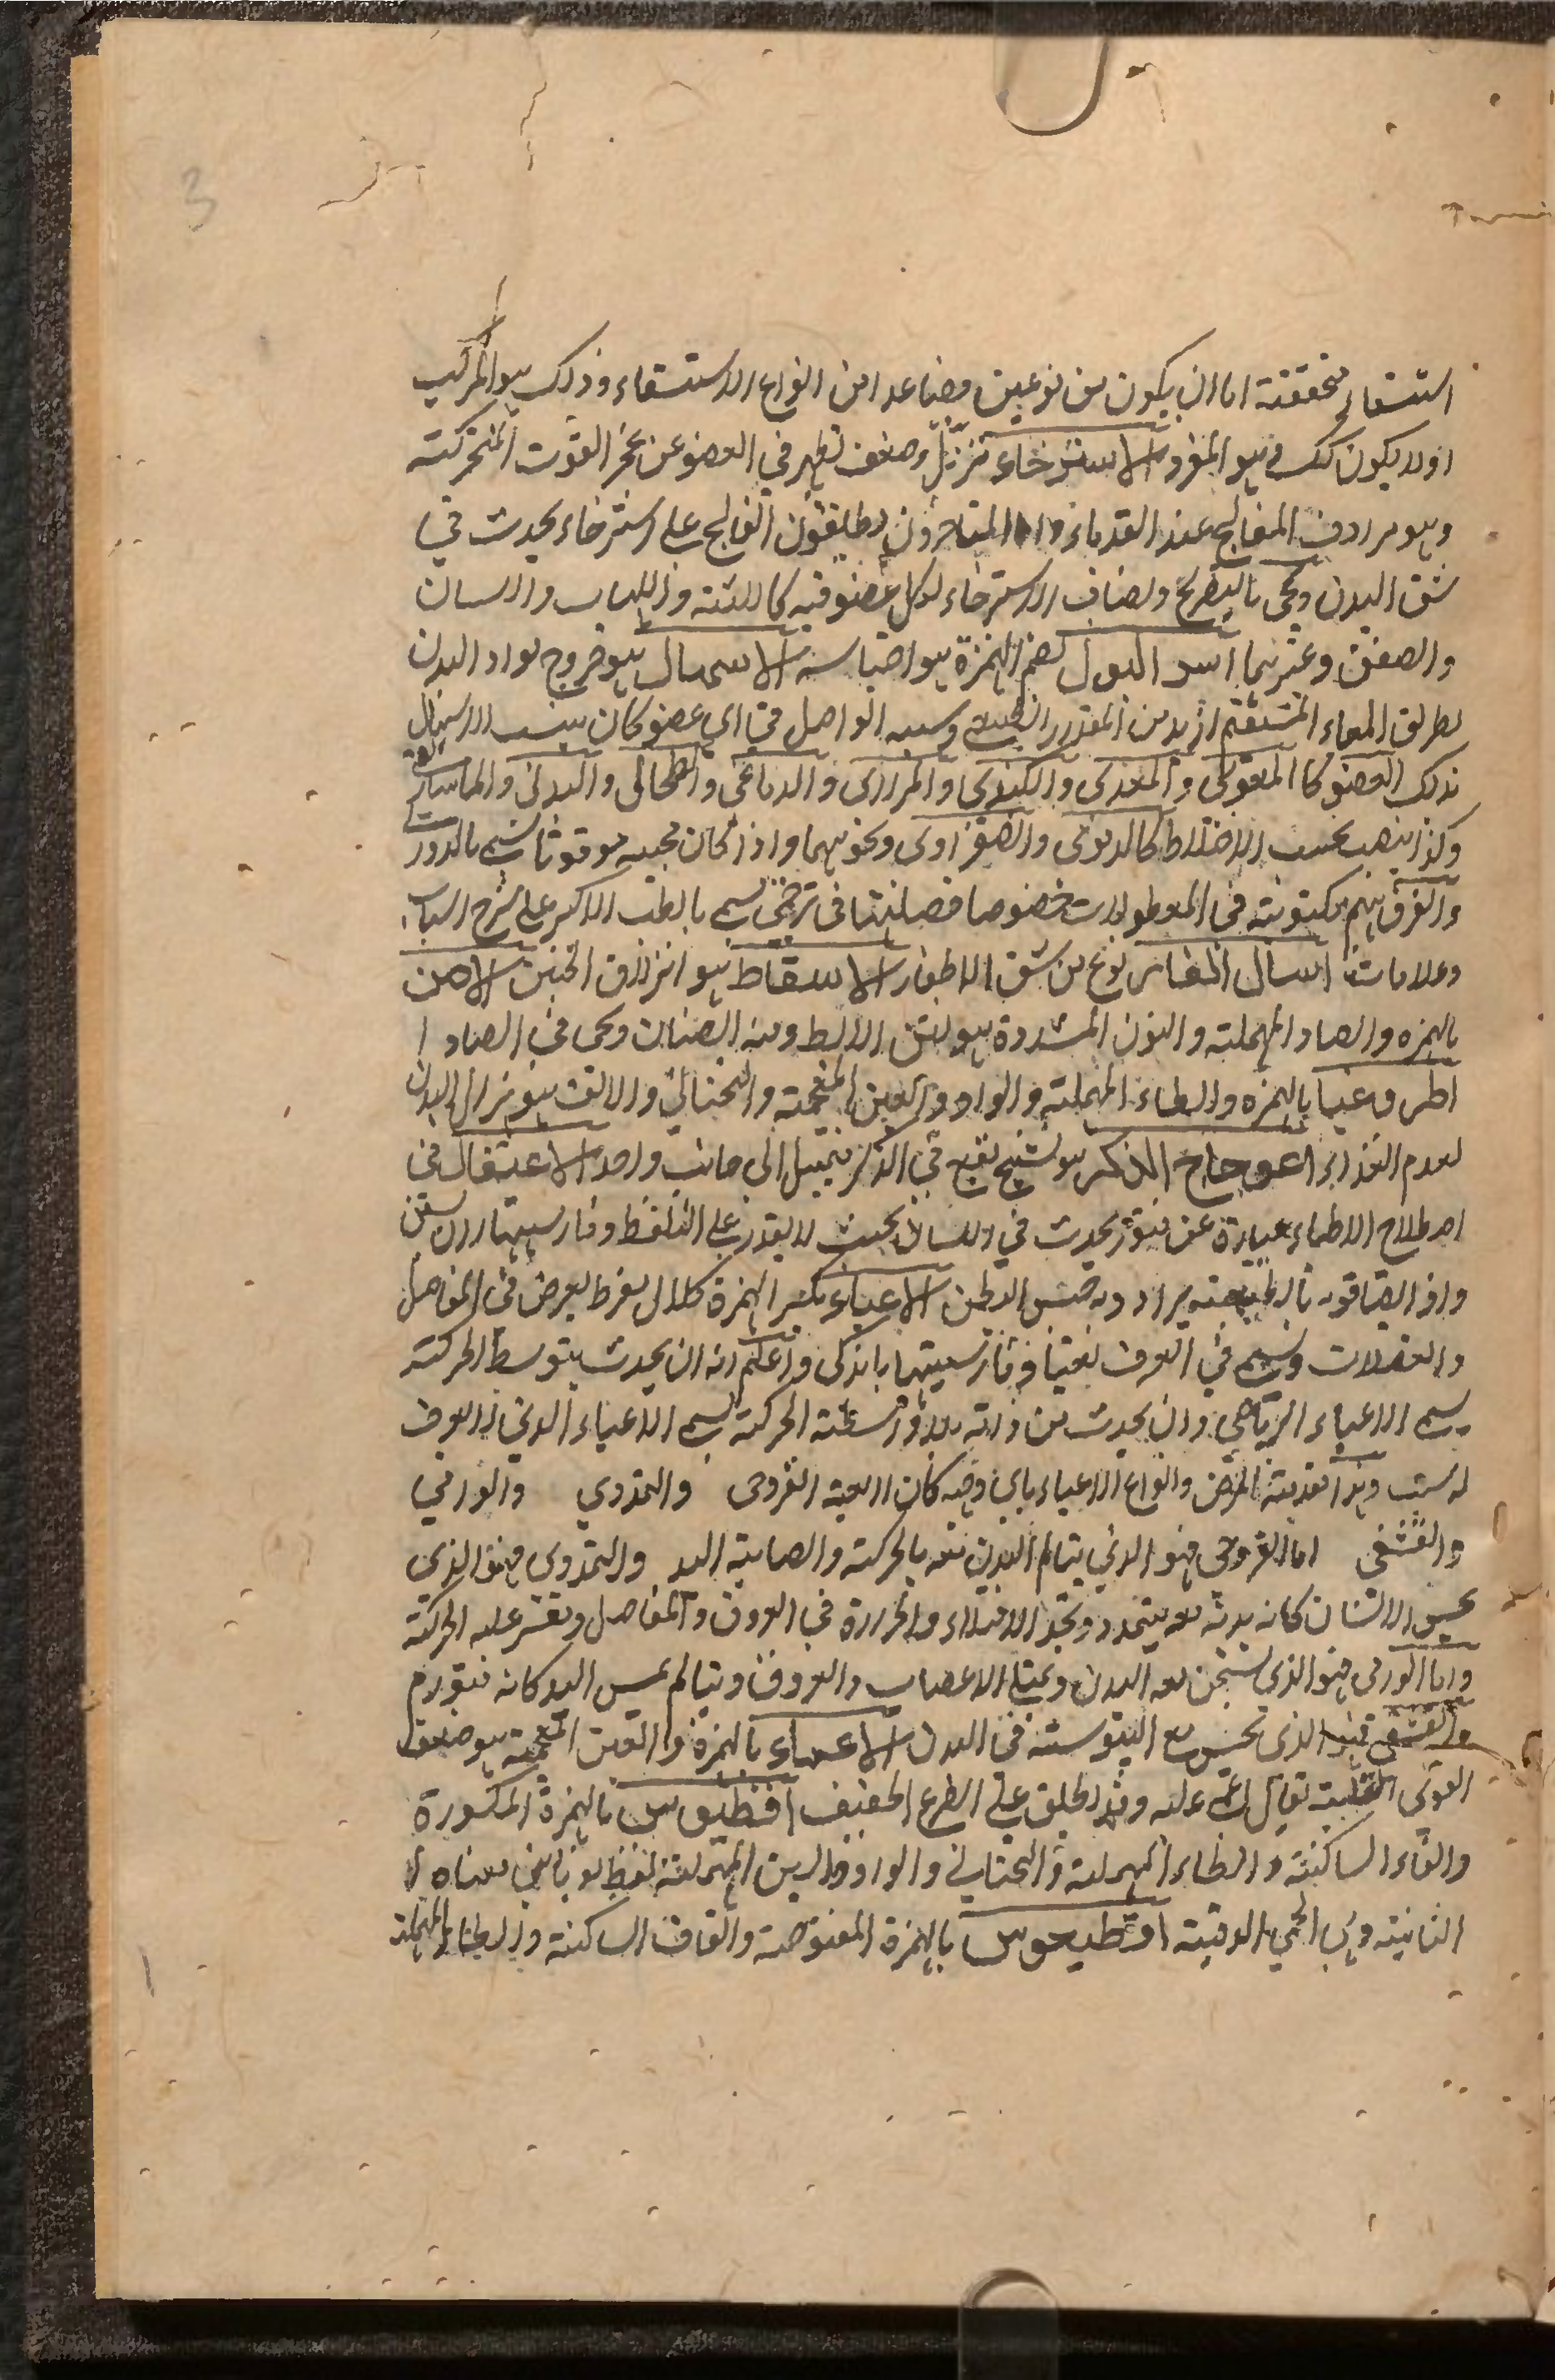 3
استسقاء محققة اما ان يكون من نوعين فصاعدا من انواع الاستسقاء وذلك هو المركب
او لا يكون كك فهو المفرد الاسترخاء ترهل وضعف تظهر في العضو عن عجز القوت المتحركة
وهو مرادف الفالج عند القدماء واما المتاخرون يطلقون الفالج على استرخاء يحدث في
شق البدن ويجي بالتصريح ويضاف الاسترخاء لكل عضو فيه كاللثة واللهاب واللسان
والصفن وغيرهما اسر البول بضم الهمزة هو احتباسه الاسهال هو خروج مواد البدن
بطريق المعاء المستقيم ازيد من المقدار الطبيعي وسببه الواصل في اي عضو كان ينسب الاسهال
بذلك العضو كالمعوي والمعدي والكبدي والمراري والدماغي والطحالي والبدني والماساريقي
وكذا ينسب بحسب الاختلاط كالدموي والصفراوي ونحوهما واذا كان مجيه موقوتا يسمى بالدوري
والفرق بينهم مكتوبة في المطولات خصوصا فصلنتها في ترجمتي يسمى بالطب الاكبر على شرح اسباب
وعلامات اسنان الفار نوع من شق الاظفار الاسقاط هو انزلاق الجنين الاصن
بالهمزه والصاد المهملة والنون المشددة هو نتن الابط ومنه الصنان ويجي في الصاد
اطروغيا بالهمزه والطاء المهملة والواو والغين المعجمة والتحتاني والالف هو هزال البدن
لعدم الغذاء اعوجاج الذكر هو تشنج يقع في الذكر فيميل الى جانب واحد الاعتقال في
اصطلاح الاطباء عبارة عن فتور يحدث في اللسان بحيث لا يقدر على التلفظ وفارسيتها زبان بستن
واذا لصاقوه بالطبيعة يراد به حبس البطن الاعياء بكسر الهمزة كلال مفرط يعرض في المفاصل
والعضلات ويسمى في العرف تعبا وفارسيتها ماندكي واعلم انه ان يحدث بتوسط الحركة
يسمى الاعياء الرياضي وان يحدث من ذاته بلا واسطة الحركة يسمى الاعياء الذي لا يعرف
له سبب وهذا مقدمة المرض وانواع الاعياء باي وجه كان اربعة القروحي والتمددي والورمي
والقشفي اما القروحي فهو الذي يتالم البدن معه بالحركة والصابة اليد والتمددي فهو الذي
يحس الانسان كانه بدنه معه يتمدد وتجد الامتلاء والحرارة في العروق والمفاصل وتعسر عليه الحركة
واما الورمي فهو الذي يسخن معه البدن ويمتلي الاعصاب والعروق ويتالم بمس اليد كانه متورم
والقشفي فهو الذي تحس مع اليبوسة في البدن الاغماء بالهمزة والغين المعجمة هو ضعف
القوى القلبية يقال اغمي عليه وقد يطلق على الصرع الخفيف افطيقوس بالهمزة المكسورة
والفاء الساكنة والطاء المهملة والتحتاني والواو والسين المهملة لفظ يوناني معناه
الثانية وهي الحمى الدقية اقطيعوس بالهمزة المفتوحة والقاف الساكنة والطاء المهملة